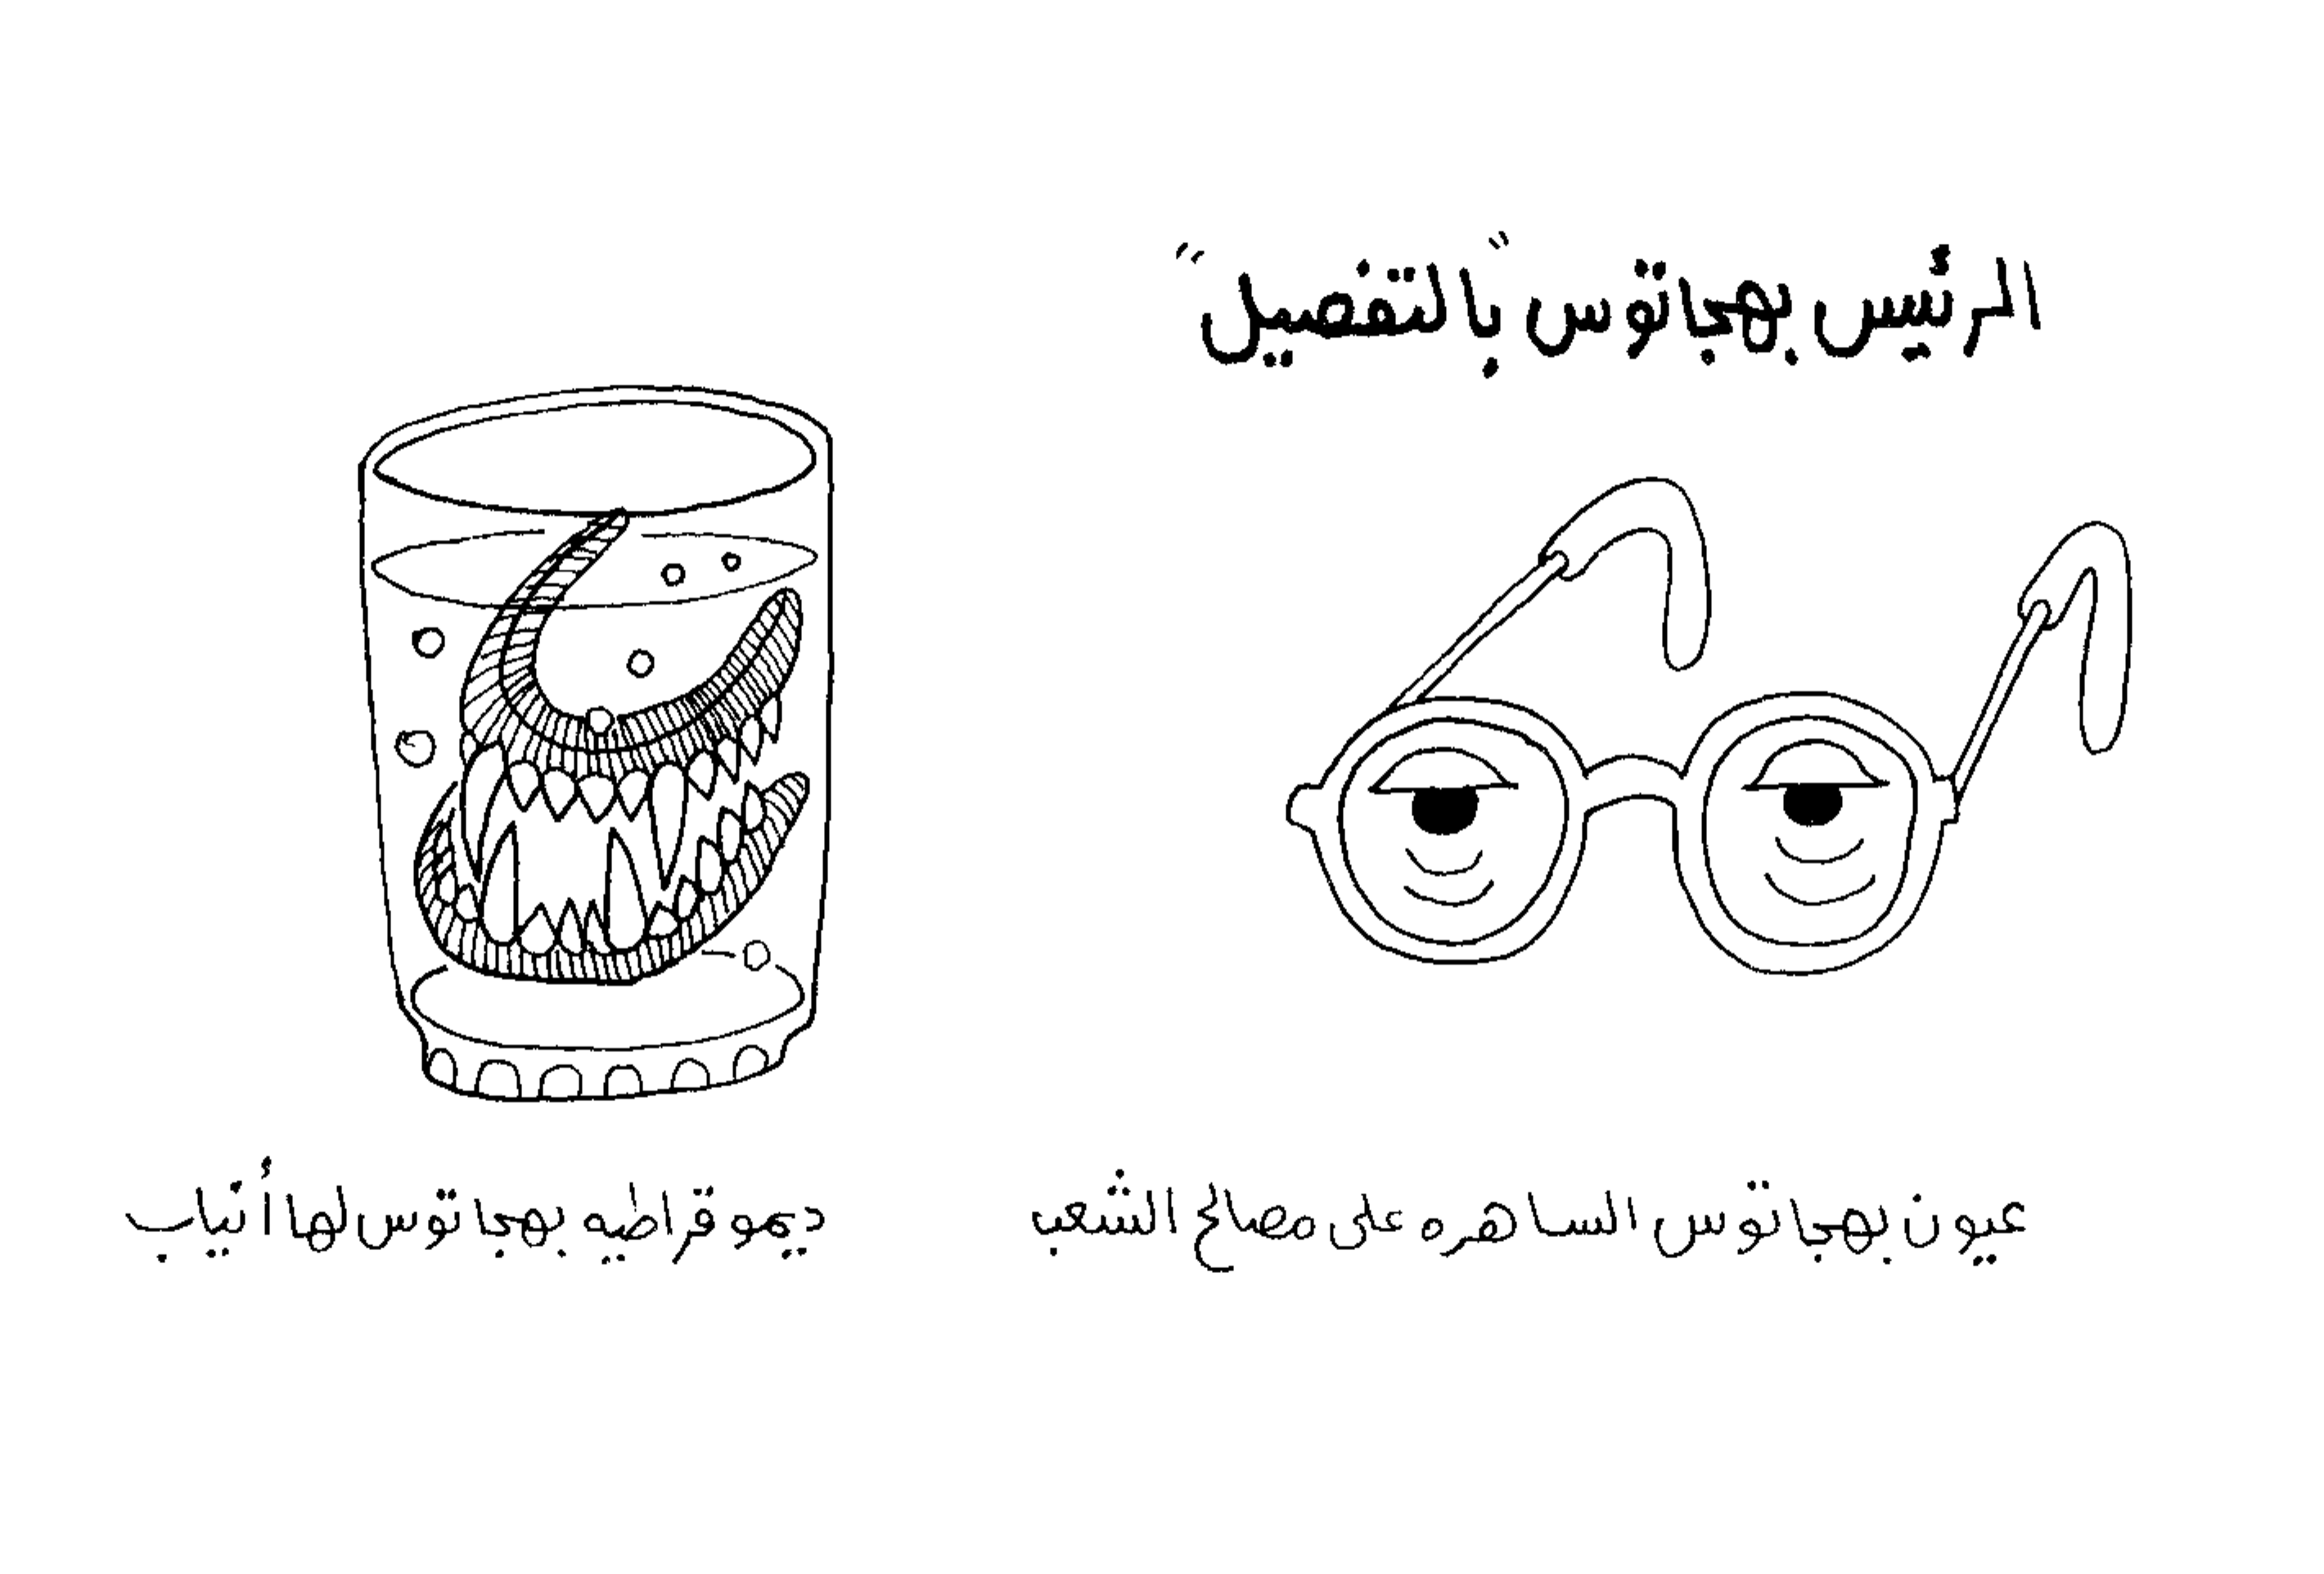 الرئيس بهجاتوس "بالتفصيل"
عيون بهجاتوس الساهره على مصالح الشعب
ديموقراطيه بهجاتوس لها أنياب